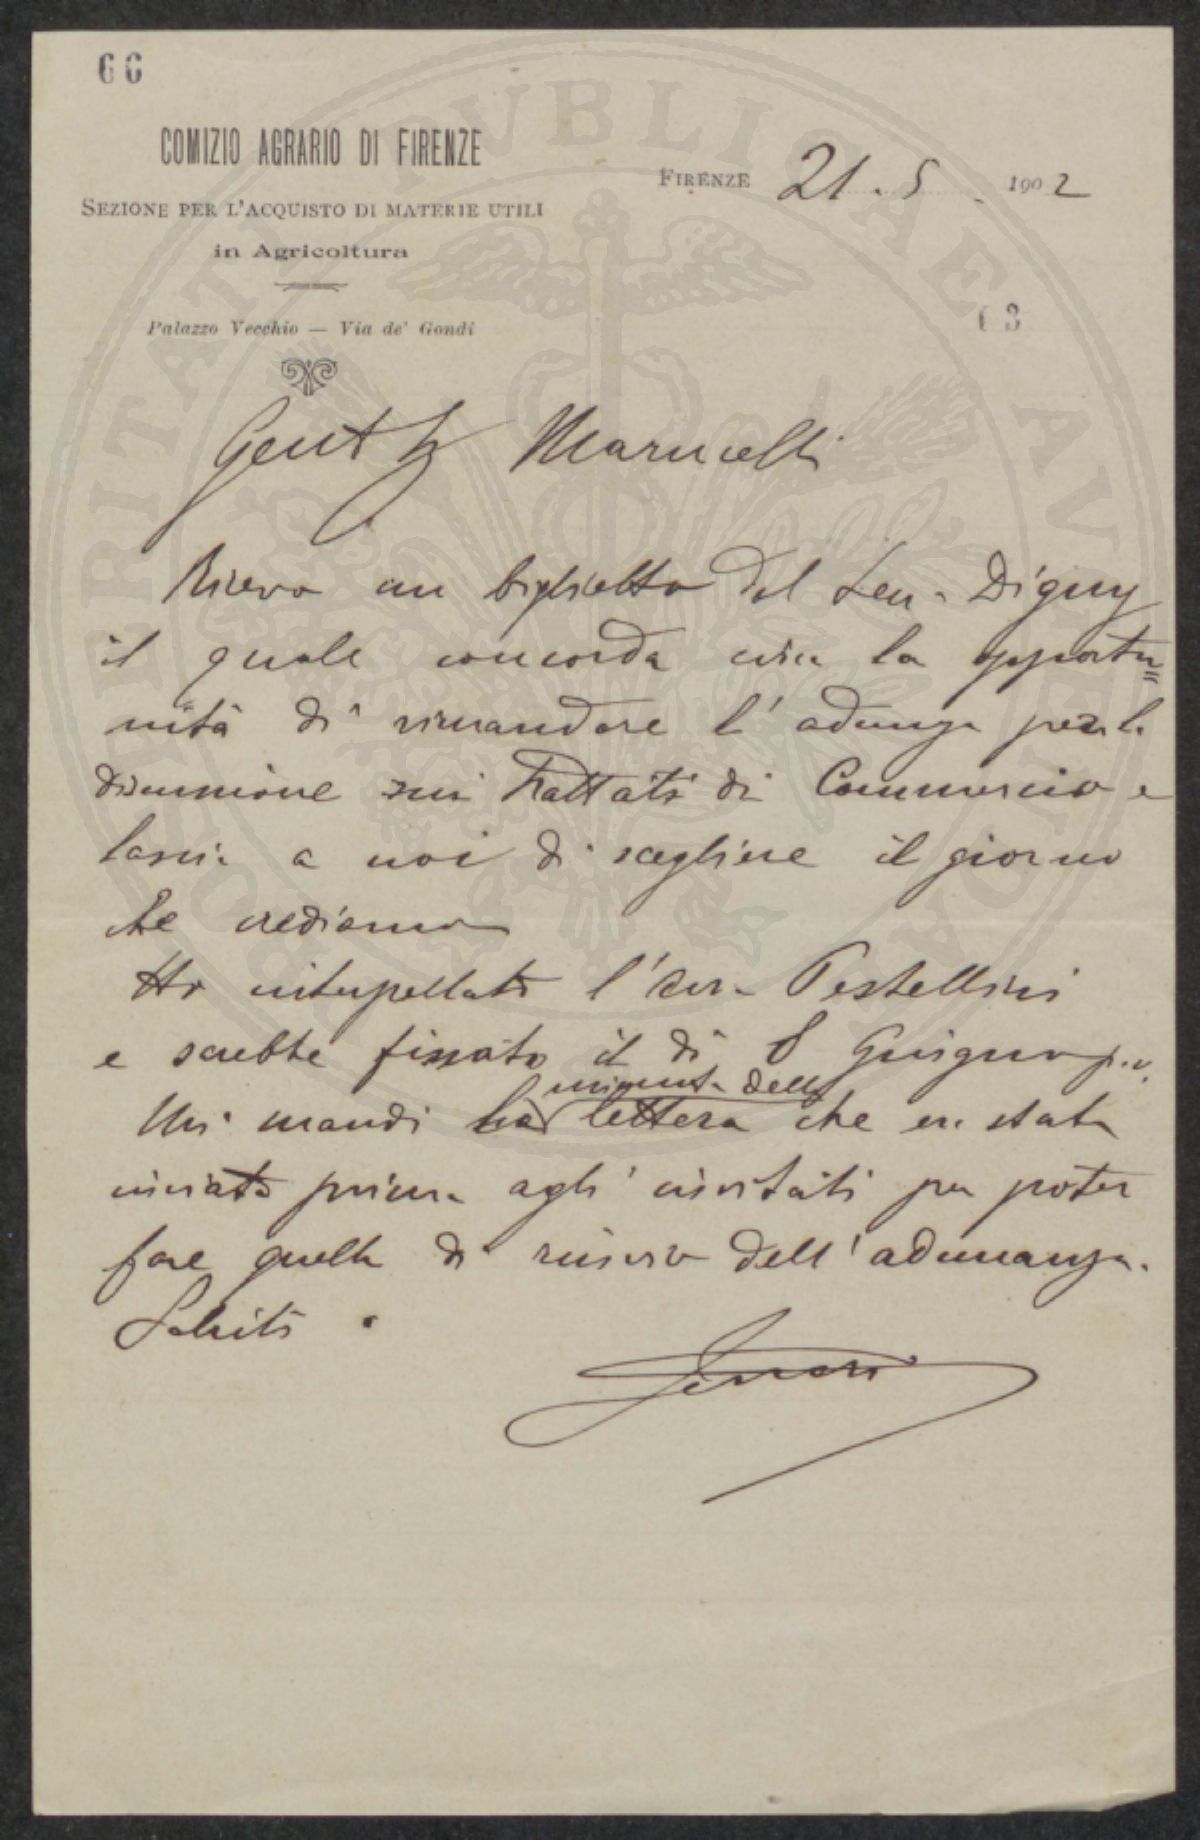 66
COMIZIO AGRARIO DI FIRENZE
SEZIONE PER L'ACQUISTO DI MATERIE UTILI
in Agricoltura
Palazzo Vecchio — Via de' Gondi
FIRENZE 21.5. 1902
63
Gent Marucelli
Ricevo un biglietto del Sen. Digny
il quale concorda circa la opportu=
nità di rimandare l'adunza per la
discussione sui Trattati di Commercio e
lascia a noi di scegliere il giorno
che crediamo
Ho interpellato l' Pestellini
e sarebbe fissato il dì 8 Giugno p.v.
minuta della
Mi mandi la lettera che era stata
inviata prima agli invitati per poter
fare quella di rinvio dell'adunanza.
Saluti.